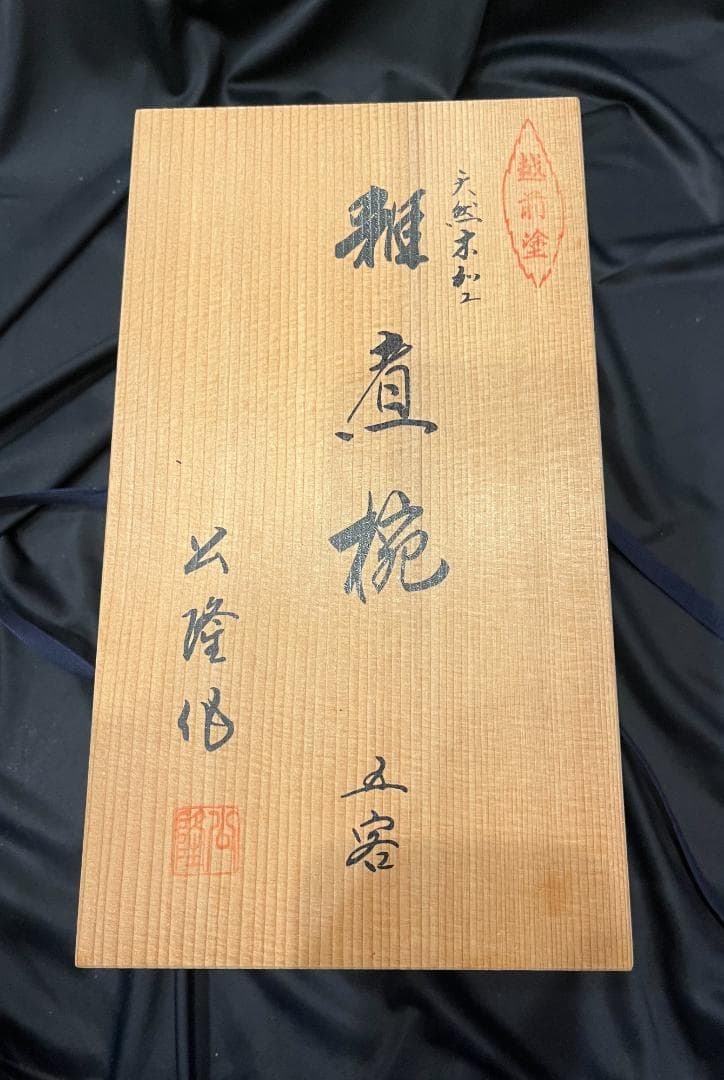 越前塗
天然木加工
雑煮椀 五客
公隆作
公隆